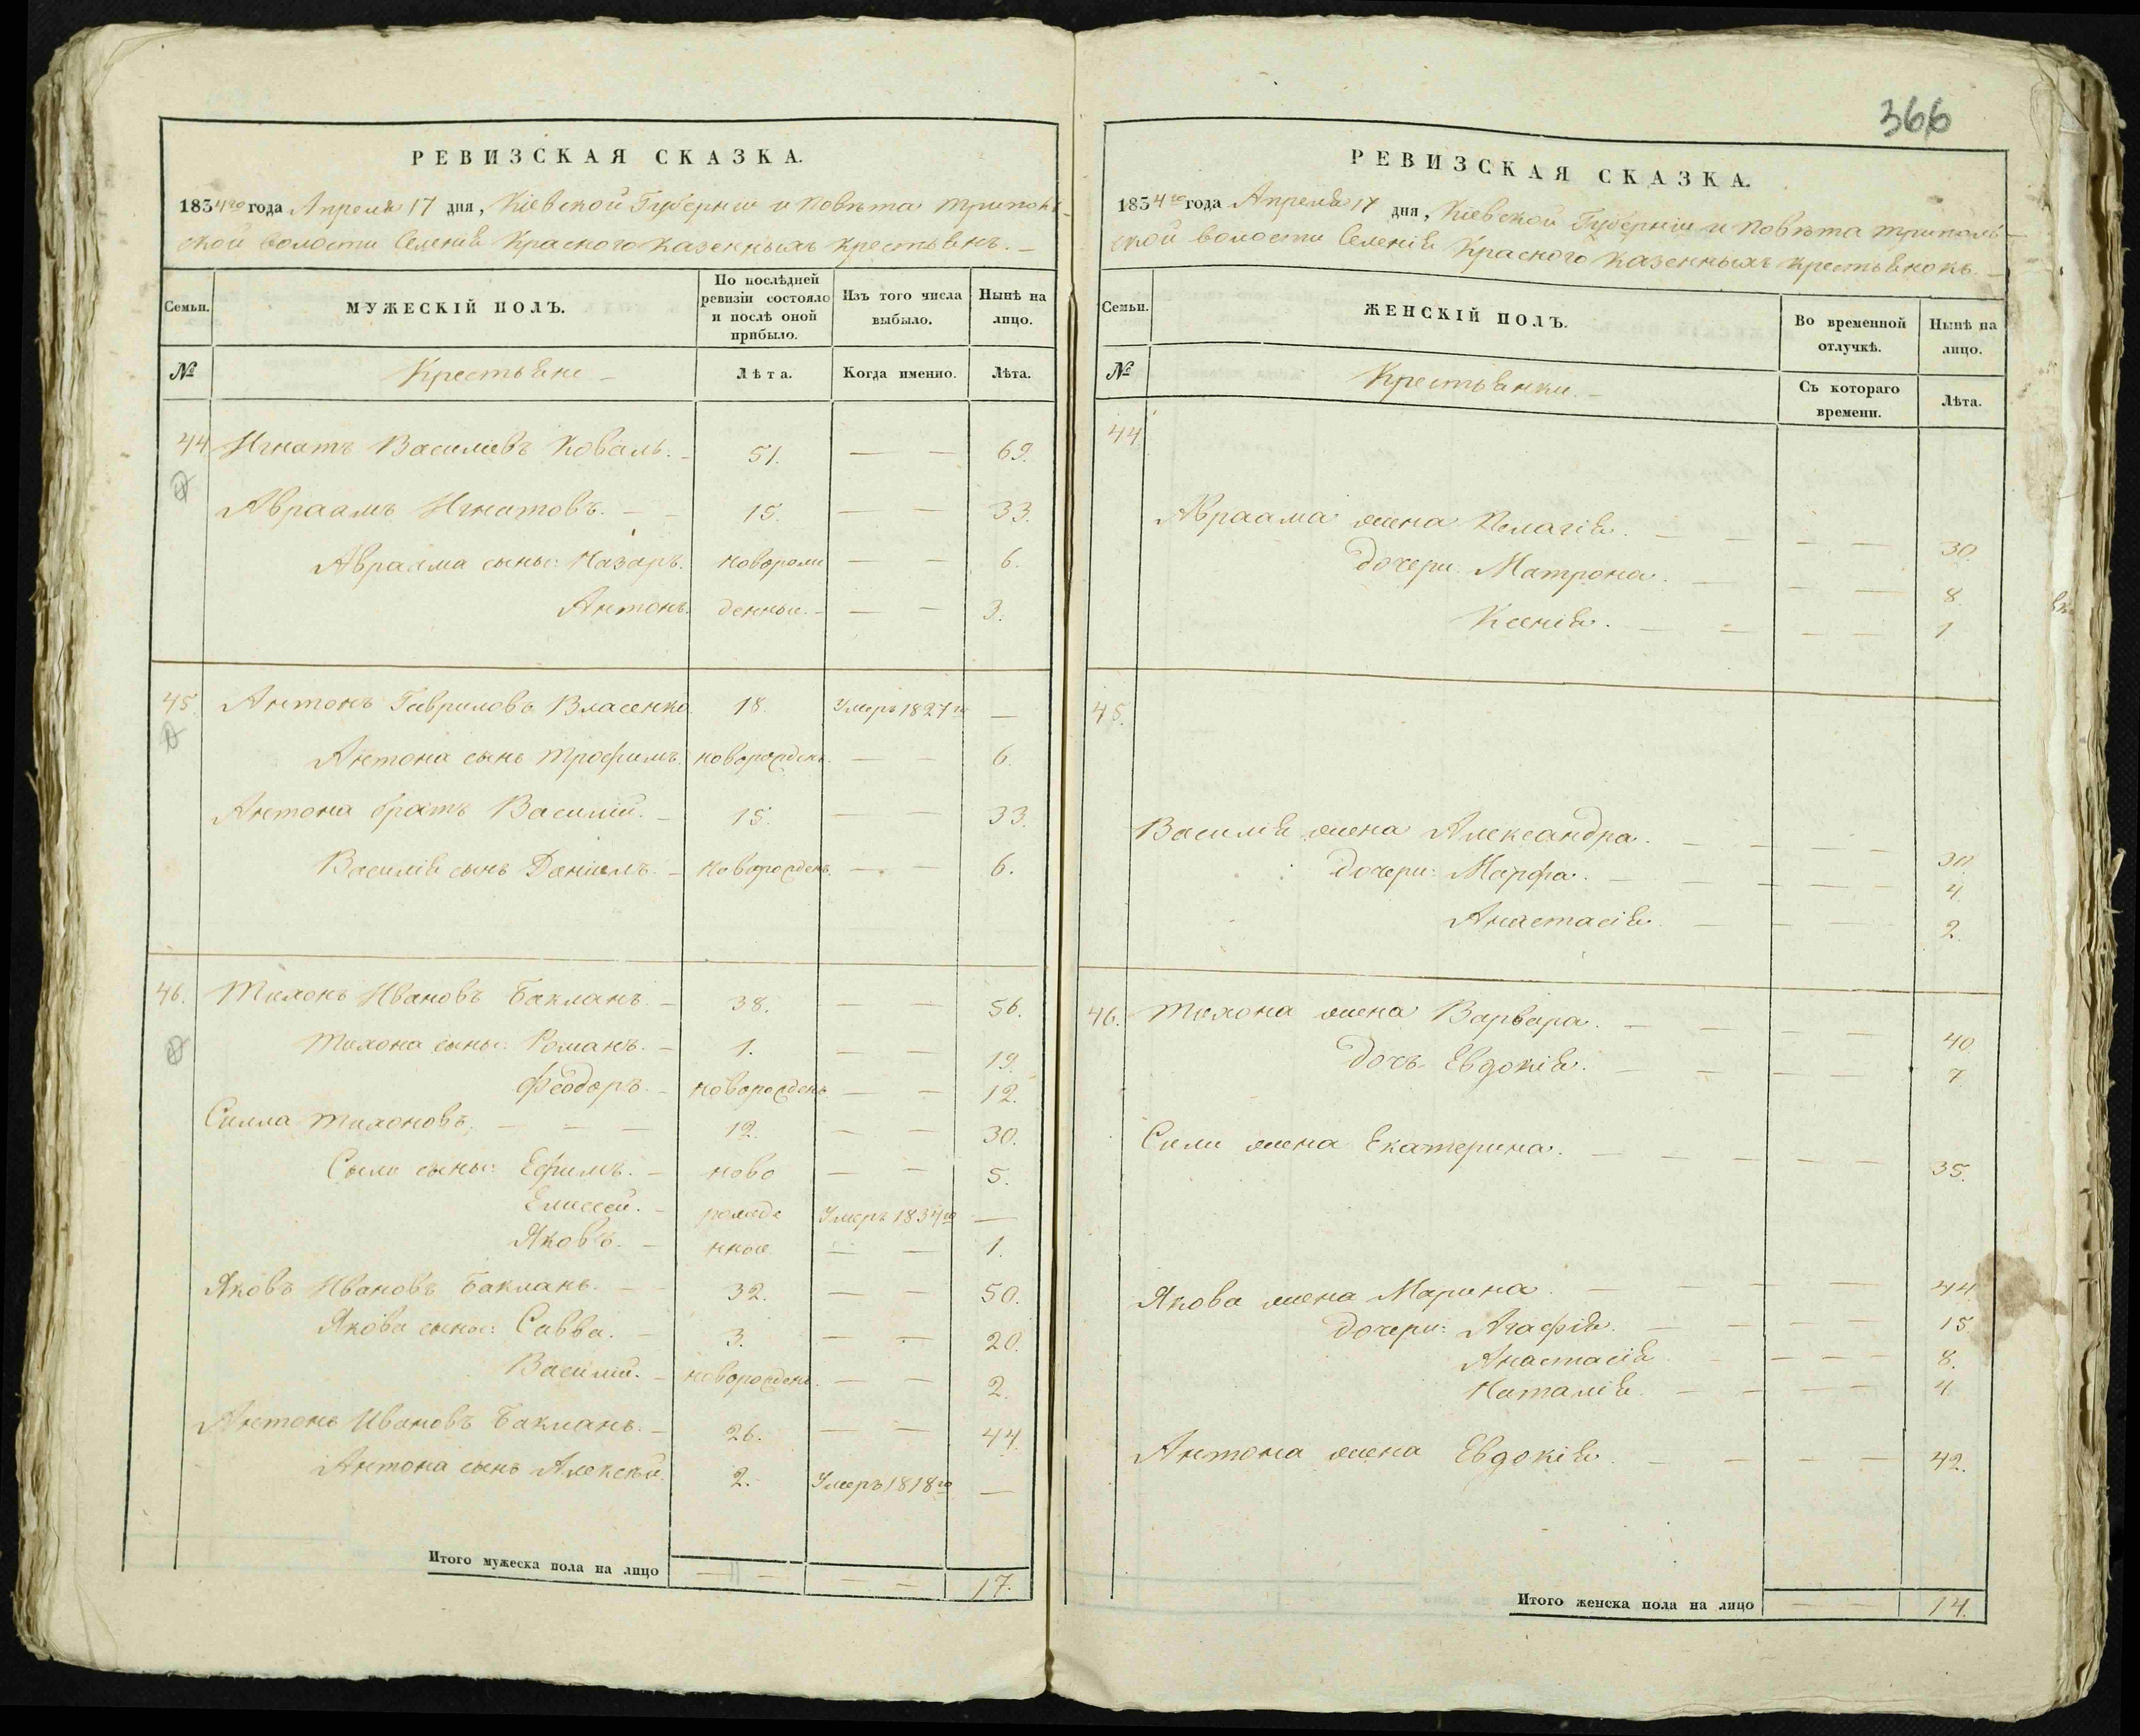 РЕВИЗСКАЯ СКАЗКА.
1834го года Апреля 17 дня, Кіевской Губерніи и Повѣта Триполь-
ской волости Селенія Красного казенныхъ крестьянъ.
Семьи. МУЖЕСКІЙ ПОЛЪ. По послѣдней ревизіи состояло и послѣ оной прибыло. Изъ того числа выбыло. Нынѣ на лицо.
№ Крестьяне Лѣта. Когда именно. Лѣта.
44 Игнатъ Василіевъ Коваль. 51. — — 69.
Авраамъ Игнатовъ. — — 15. — — 33.
Авраама сыны: Назаръ. новорож — — 6.
Антонъ. денные. — — 3.
45. Антонъ Гавриловъ Власенко. 18. Умеръ 1827го —
Антона сынъ Трофимъ. новорожденъ. — — 6.
Антона братъ Василій. — 15. — — 33.
Василія сынъ Даніилъ. — новорожденъ. — — 6.
46. Тихонъ Ивановъ Бакланъ. — 38. — — 56.
Тихона сыны: Романъ. — 1. — — 19.
Феодоръ. — новорожденъ — — 12.
Силла Тихоновъ. — — — 12. — — 30.
Силы сыны: Ефимъ. — ново — — 5.
Елисей. — рожде Умеръ 1834го —
Яковъ. — нные — — 1.
Яковъ Ивановъ Бакланъ. — 32. — — 50.
Якова сыны: Савва. — 3. — — 20.
Василій. — новорожденъ. — — 2.
Антонъ Ивановъ Бакланъ. — 26. — — 44.
Антона сынъ Алексѣй. 2. Умеръ 1818го —
Итого мужеска пола на лицо — — — — 17.
366
РЕВИЗСКАЯ СКАЗКА.
1834го года Апреля 17 дня, Кіевской Губерніи и Повѣта Триполь-
ской волости Селенія Красного казенныхъ крестьянокъ.
Семьи. ЖЕНСКІЙ ПОЛЪ. Во временной отлучкѣ. Нынѣ на лицо.
№ Крестьянки. — Съ котораго времени. Лѣта.
44.
Авраама жена Пелагія. — — — — 30.
Дочери: Матрона. — — — 8.
Ксенія. — — — — 1
45.
Василія жена Александра. — — — — 30.
Дочери: Марфа. — — — — 4.
Анастасія. — — — 2.
46. Тихона жена Варвара. — — — — 40.
Дочь Евдокія. — — — — 7.
Силы жена Екатерина. — — — — — 35.
Якова жена Марина. — — — — 44
Дочери: Агафія. — — — — 15.
Анастасія — — — — 8.
Наталія. — — — — 4.
Антона жена Евдокія. — — — — 42.
Итого женска пола на лицо — — 14.